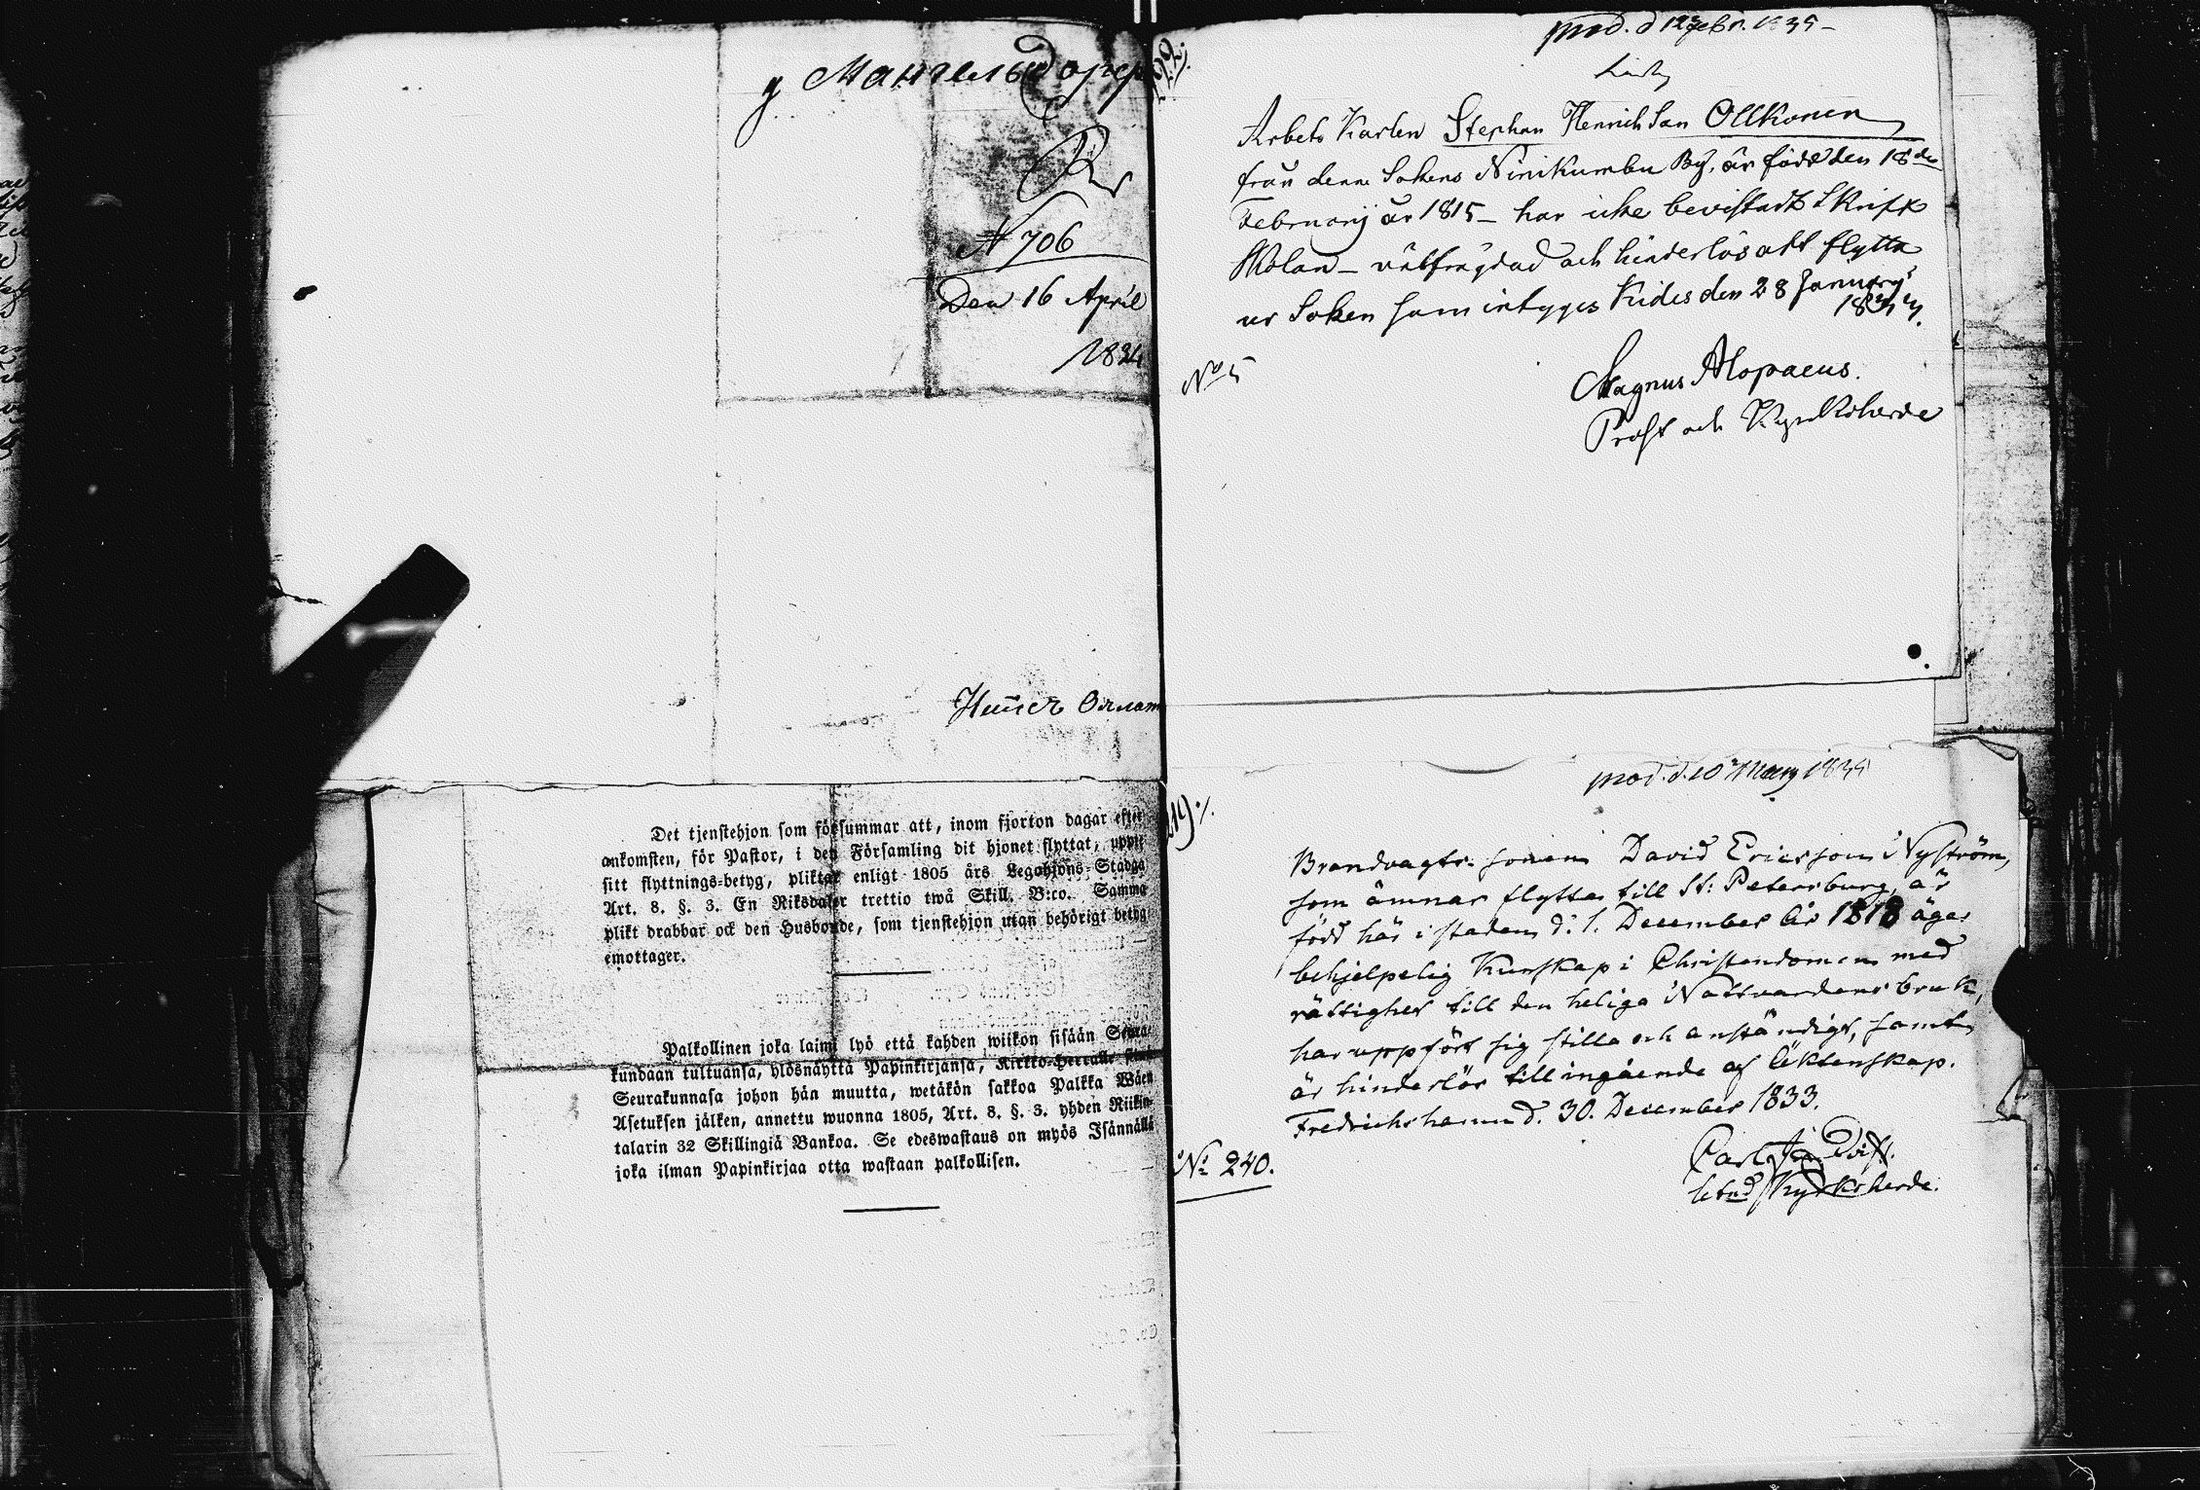 у Мангельсдорф
N 706
Den 16 April
1834
Det tjenstehjon som försummar att, inom fjorton dagar efter
ankomsten, för Pastor, i den Församling dit hjonet flyttat, uppte
sitt flyttnings-betyg, pliktar enligt 1805 års Legohjons-Stadga
Art. 8. §. 3. En Riksdaler trettio twå Skill. B:co. Samma
plikt drabbar ock den Husbonde, som tjenstehjon utan behörigt betyg
emottager.
Palkollinen joka laimi lyö että kahden wiikon sisään Seura-
kundaan tultuansa, ylösnäyttä Papinkirjansa, Kirkko-Herralle siinä
Seurakunnasa johon hän muutta, wetäkön sakkoa Palkka Wäen
Asetuksen jälken, annettu wuonna 1805, Art. 8. §. 3. yhden Riikin-
talarin 32 Skillingiä Bankoa. Se edeswastaus on myös Isännällä
joka ilman Papinkirjaa otta wastaan palkollisen.
prod. d 12 Febr. 1835
Arbets Karlen Stephan Henrichsan Ollkonen
från denna Sokens Niinikumbu By, är född den 18de
Februarij år 1815 – har icke bevistadt Skrift
Skolan – välfrägdad och hinderlös att flytta
ur Soken som intygges Kides den 28 Januarij
No 5
Magnus Alopaeus.
Prost och Kyrkoherde
prod. d. 10 Martz 1835
219 ./.
Brandvagts-sonen David Ericsson Nyström,
som ämnar flytta till St: Petersburg, är
född här i staden d: 1. December år 1818 äger
behjelpelig Kunskap i Christendomen med
rättighet till den heliga Nattvardens bruk,
har uppfört sig stilla och anständigt, samt
är hinderlös till ingående af Äktenskap.
Fredrichshamn d. 30. December 1833.
No 240.
Carl
Kyrkoherde.